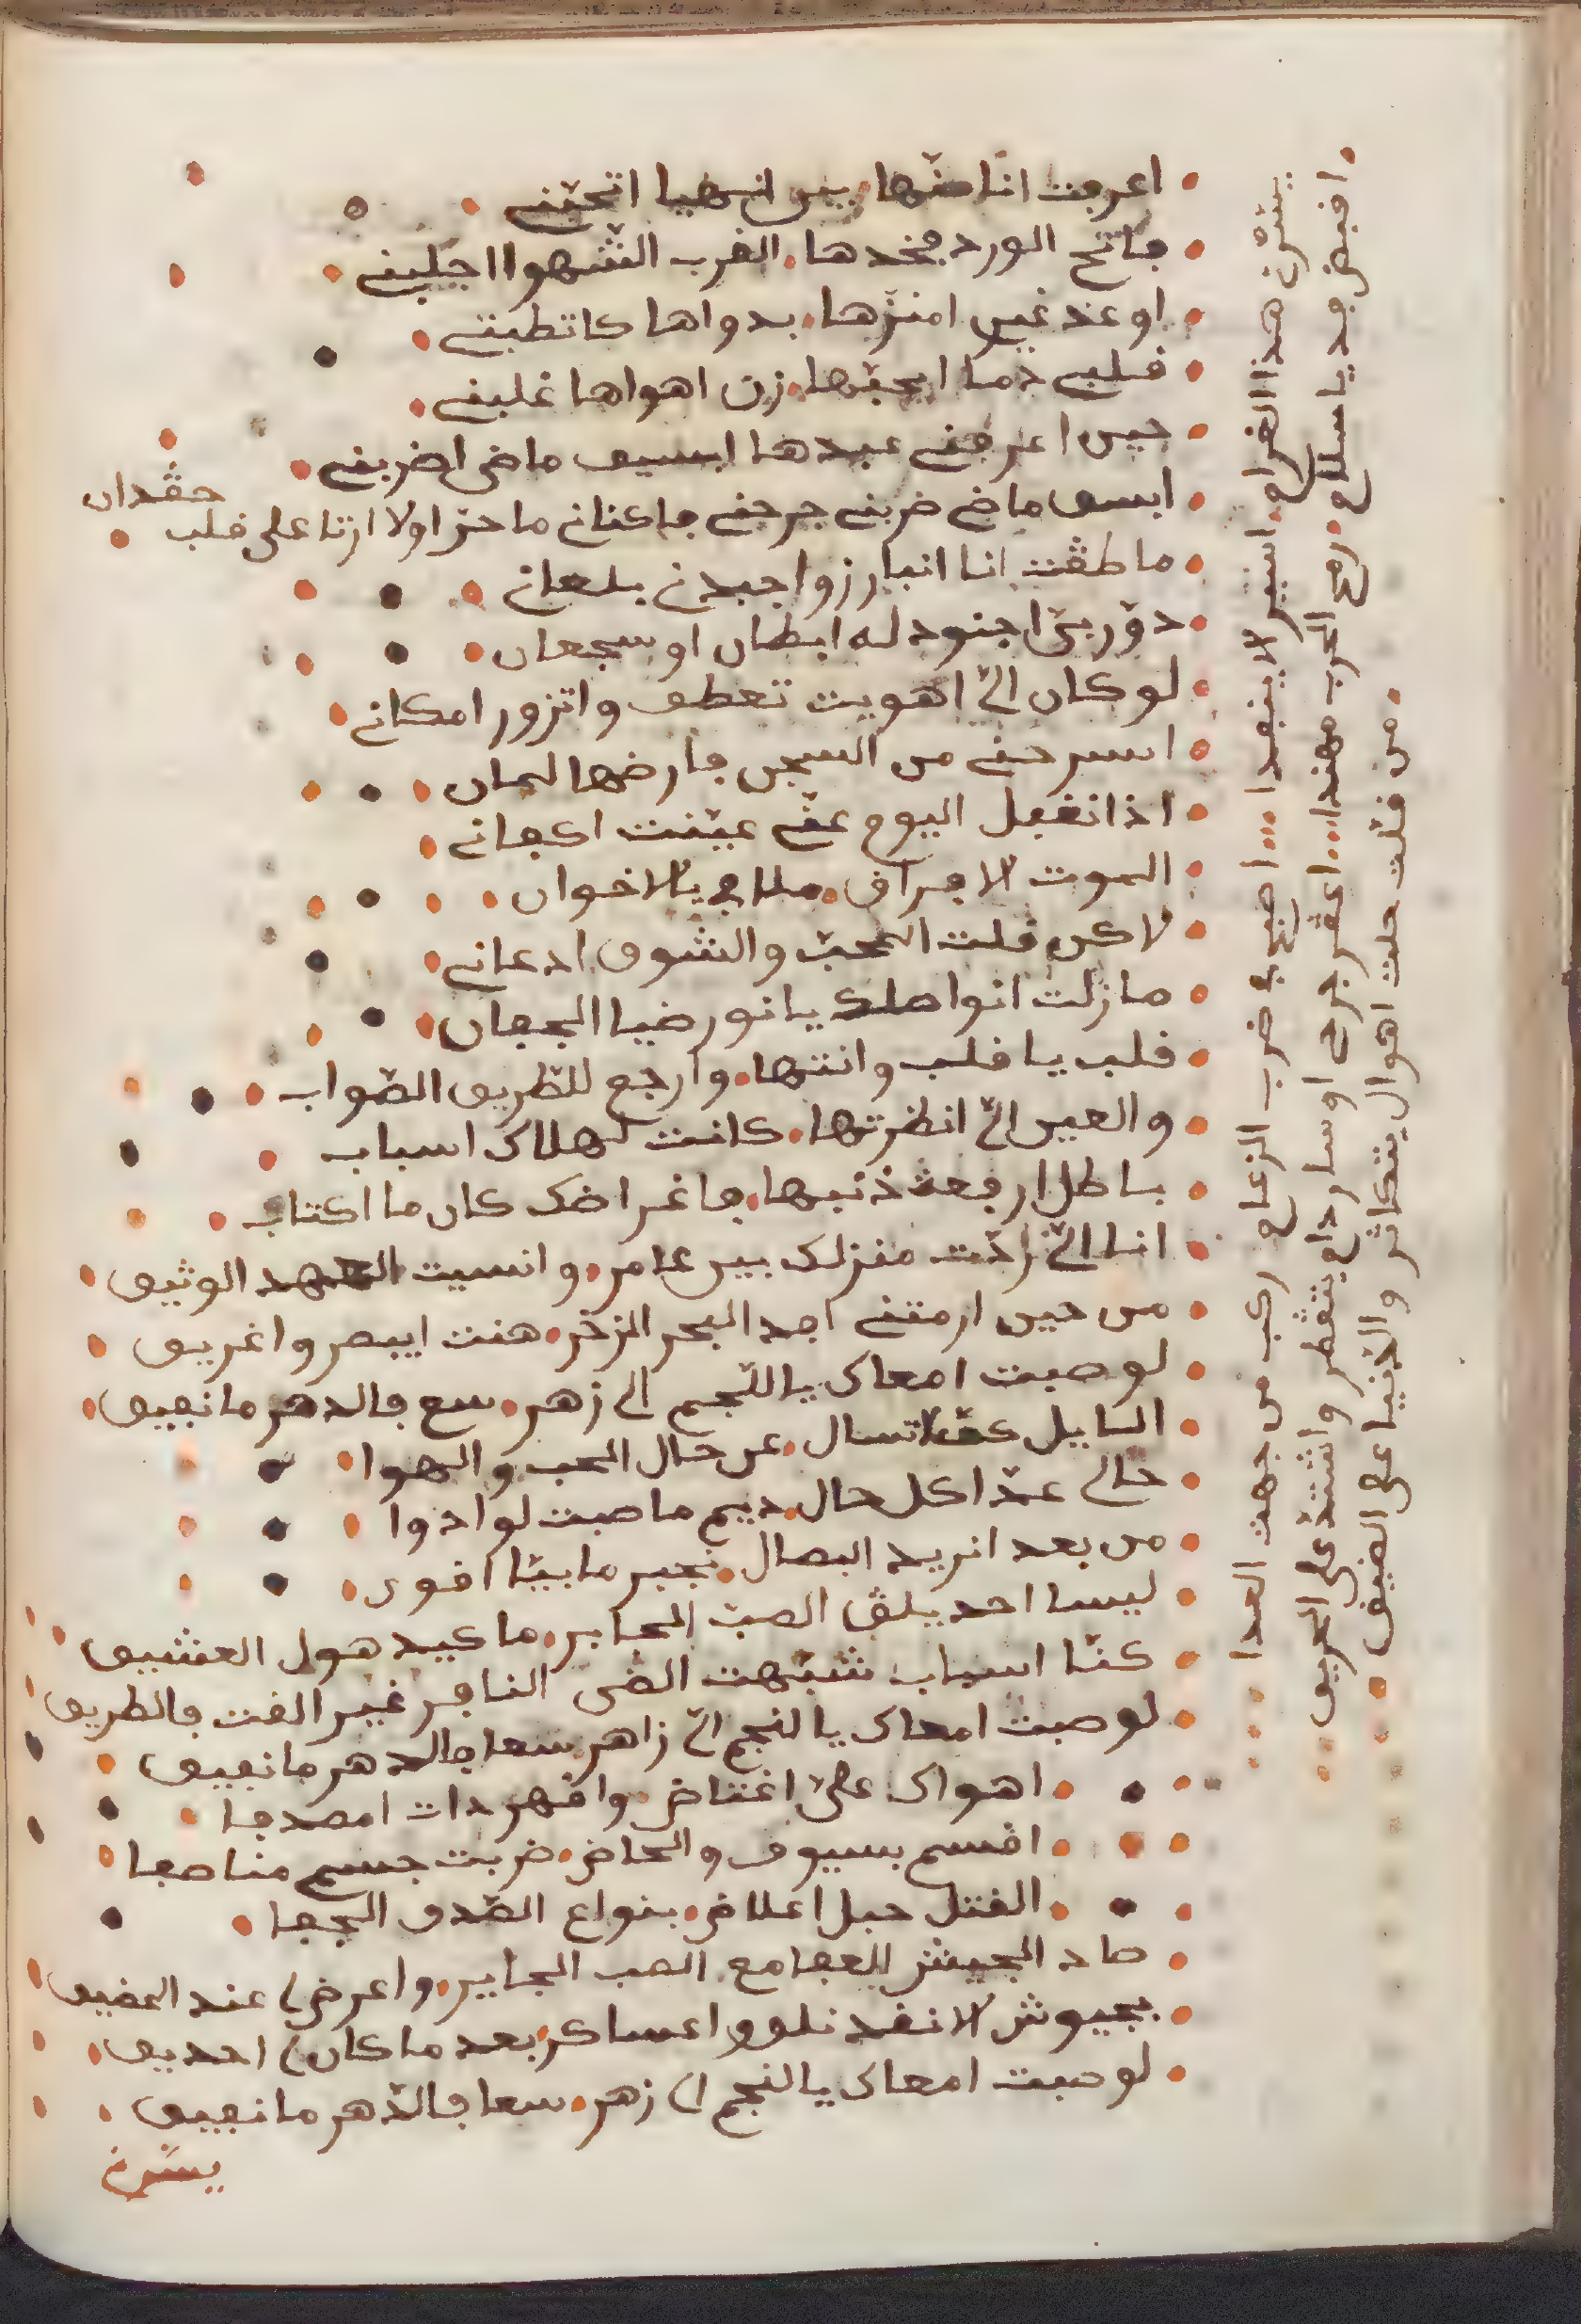 اعرفت انا منها بين انهيا اتحبني
فاتح الورد فخدها الغرب الشهوا اجلبني
او عند غير امنزها بدواها كاتطبني
قلبي دما ايحبها زن اهواها غلبني
حين اعرفني عبدها ابسيف ماضي اضربني
ابسيف ماضي ضربني جرحني فاكناني ما حز اولا ارتا على قلب حقدان
ما طقت انا انبارزوا جبدني بلعان
دور بي اجنود له ابطان او سجعان
لو كان الي اهويت تعطف واتزور امكاني
اسرحني من السجن فارضها لمان
اذا نغفل اليوم عني عينت اكفاني
الموت لا فراق ملافي يالاخوان
لاكن قلت المحب والشوق ادعاني
مازلت انواصلك يانور ضيا الجفان
قلب يا قلب وانتها وارجع للطريق الصواب
والعين الي انظرتها كانت لهلاك اسباب
باطل ارفعت ذنبها فاغراضك كان ما اكتاب
انا الي زادت منزلك بير عامر وانسيت العهد الوثيق
من حين ارمتني افد البحر الزخر هنت ايبصر واغريق
لو صبت امعاك ياللنجم الي زهر سع فالدهر ما نفيق
السايل كف لاتسال عن حال الحب والهوا
حالي عدا كل حال ديم ماصبت لو ادوا
من بعد انريد البصال نجبر ما بيا اقوى
ليسا احد يلق الصب الحابر ما كييد هول العشيق
كنا اسباب شبهت الضي النافر غير الفت فالطريق
لو صبت امعاك يالنجم الي زاهر سعا فالدهر ما نفيق
اهواك علي اغتاض واقهر دات امصدفا
اقسم بسيوف والحاض ضربت جسم مناصفا
القتل حبل اعلاض بنواع الصدف الجفا
صاد الجيش للعفامع الصب الجاير واعرض لي عند المضيق
بجيوش لا نفد نلوو اعساكر بعد ما كان لي احديق
لو صبت امعاك يالنجم الي زهر سعا فالدهر ما نفيق
يسرن
يسرن هذا الغرام استير لا ينفدا اصبح في ضرب الزعام ركب من جهت العدا
اقبض فد ياسلام رمح الحرب مهندا اعقر جرحي اوسار دام يتقطر واشتد علي الحريق
من قلت حلت اهوال يتكاثر والدنيا على الضيق